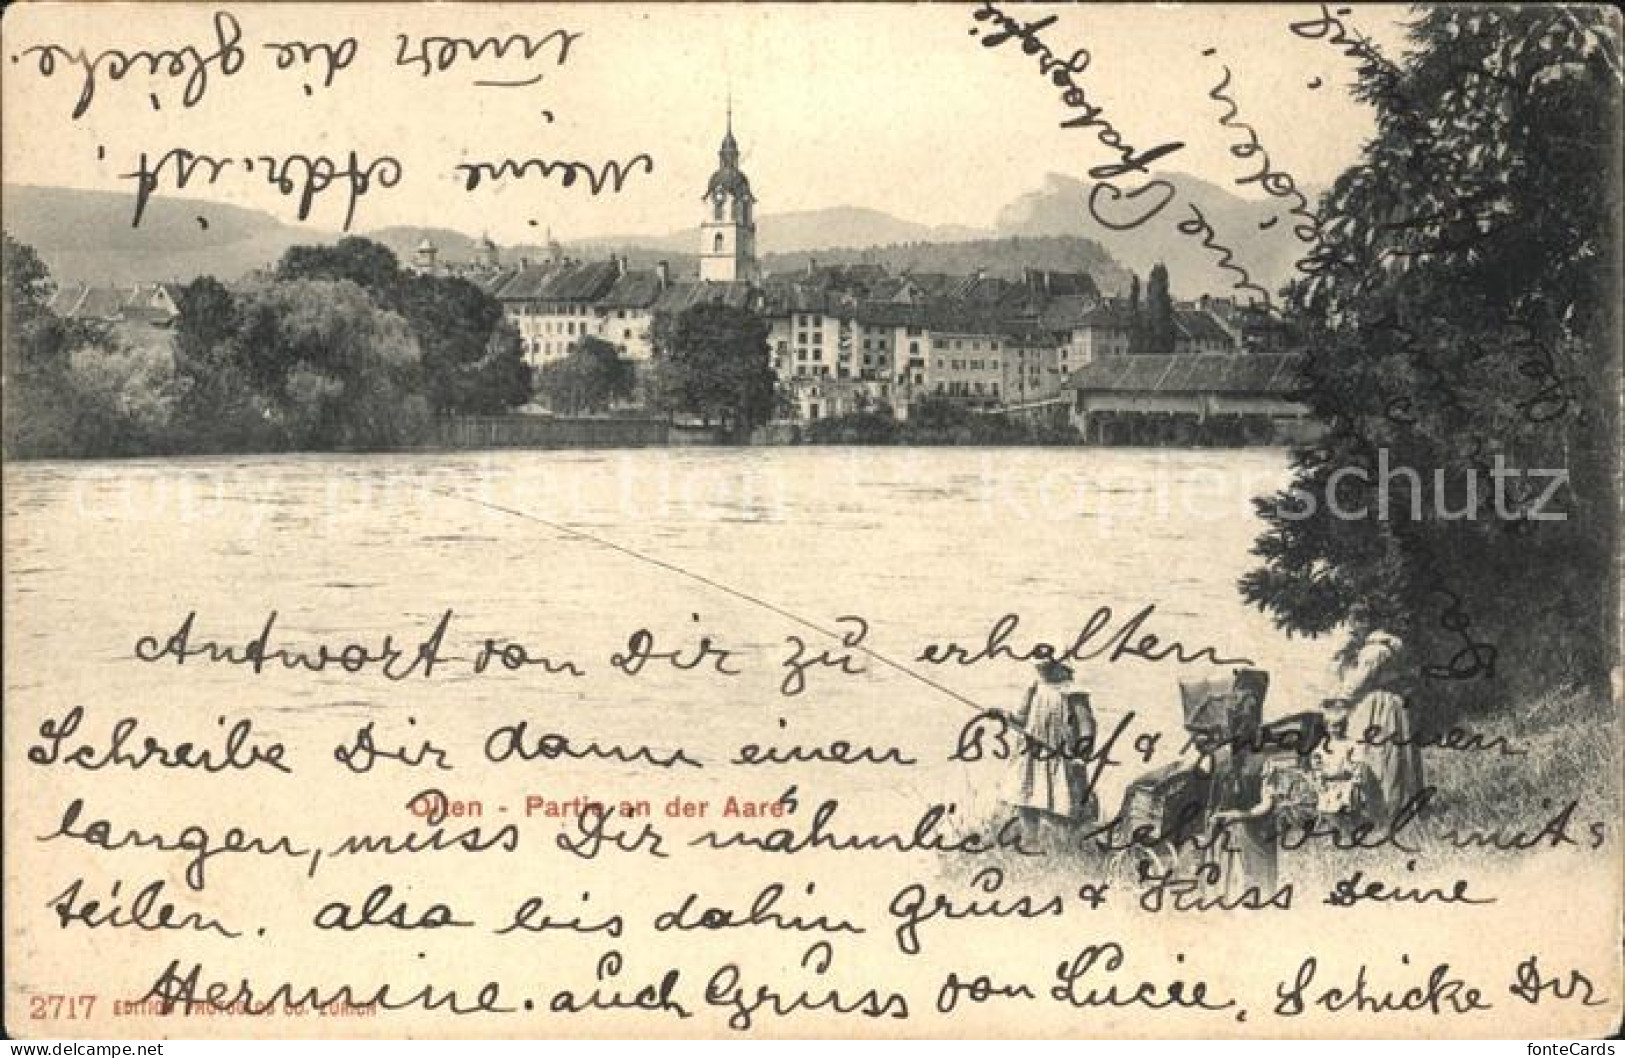 Antwort von Dir zu erhalten
Schreibe Dir dann einen Brief & zwar einen
langen, muss Dir nähmlich sehr viel mit-
teilen. also bis dahin Gruss & Kuss Deine
Hermine. auch Gruss von Lucie. Schicke Dir
eine Photographie
Meine Adr. ist
imer die gleiche.
Olten - Partie an der Aare
2717 EDITION PHOTOGLOB CO. ZÜRICH
copy protection kopierschutz
fonteCards